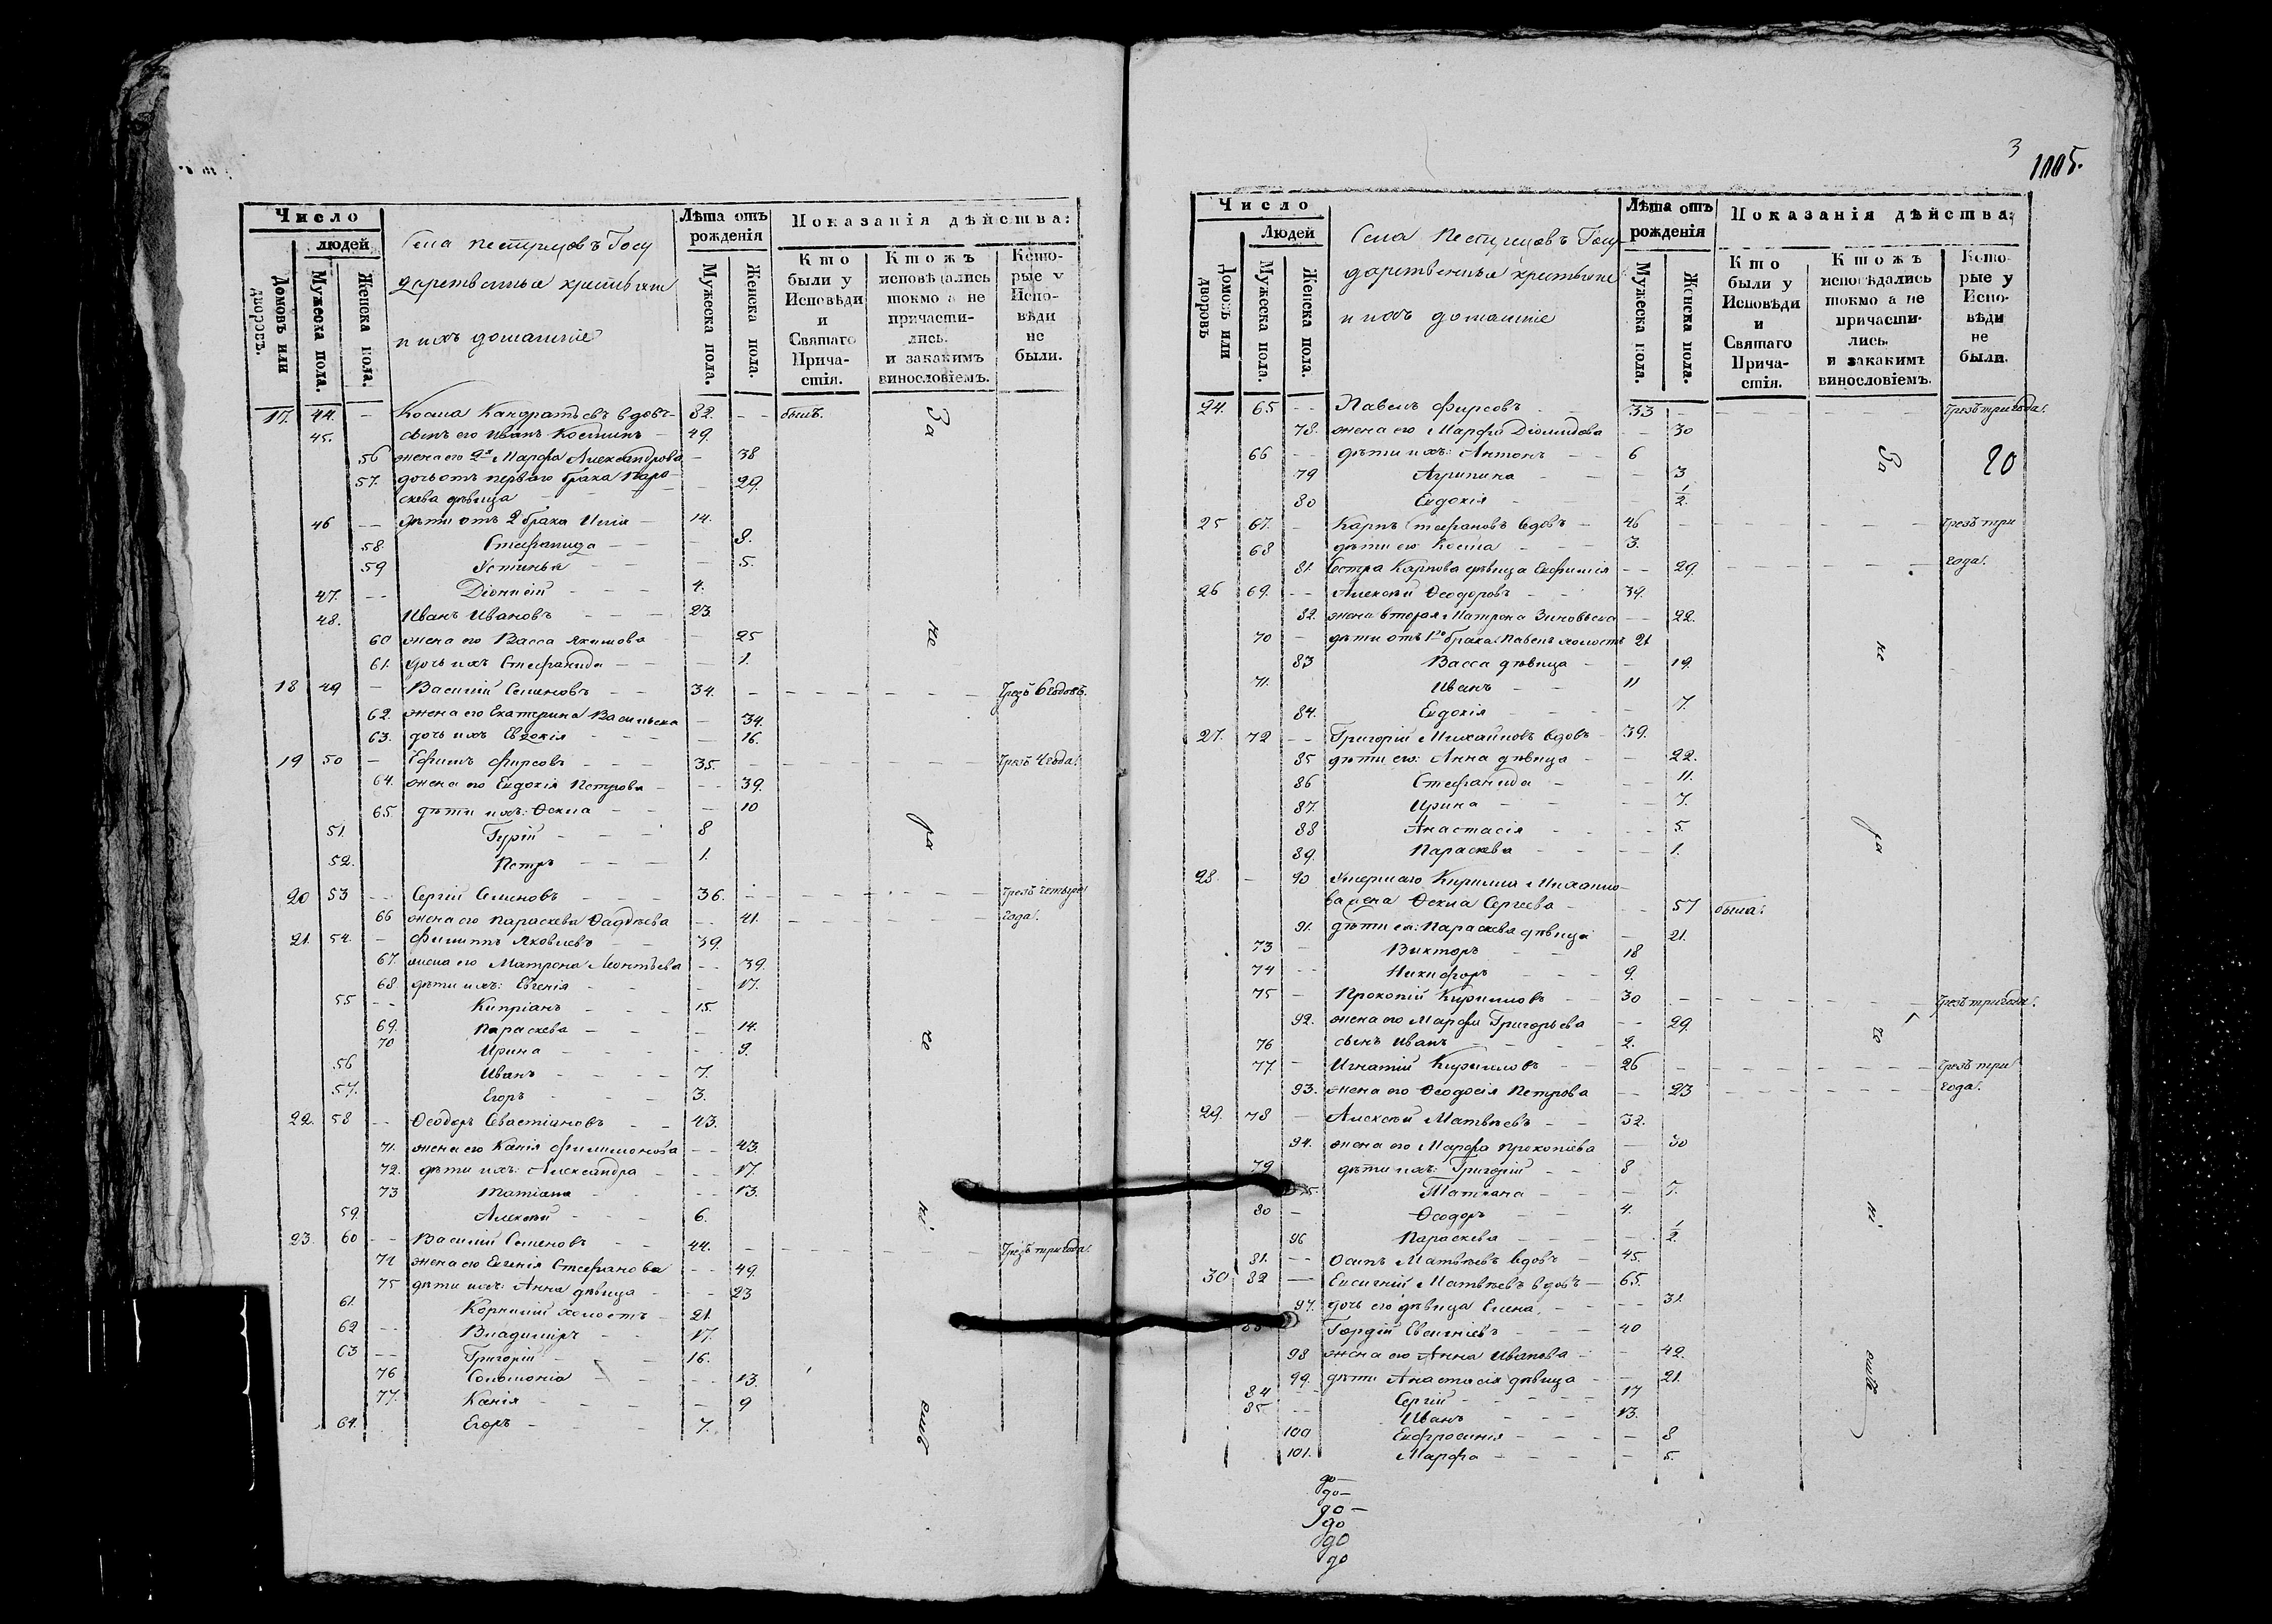 Число
людей
Домовъ или дворовъ.
Мужеска пола.
Женска пола.
Села Пестрецовъ Госу
дарственныя крестьяне
и ихъ домашніе
Лѣта отъ рожденія
Мужеска пола.
Женска пола.
Показанія дѣйства:
Кто были у Исповѣди и Святаго Причастія.
Ктожъ исповѣдались токмо а не причастились. и закакимъ винословіемъ.
Которые у Исповѣди не были.
17. 44. — Косма Кандратьевъ вдовъ — 82. — — былъ.
45. сынъ его Иванъ Косминъ — 49.
56 жена его 2я Марфа Александрова — 38
57. дочь отъ перваго брака Параскева дѣвица — 29.
46 — дѣти отъ 2 брака Илія — 14.
58. Стефанида — — 8.
59 Устинья — — 5.
47. — Діонисій — 4.
48. Иванъ Ивановъ — 23.
60 жена его Васса Якимова — 25
61. дочь ихъ Стефанида — — 1.
18 49 — Василій Семеновъ — 34. — Чрезъ 6 годовъ.
62. жена его Екатерина Васильева — 34.
63. дочь ихъ Евдокія — — 16.
19 50 — Ефимъ Фирсовъ — 35. — Чрезъ 4 года.
64. жена его Евдокія Петрова — 39.
65. дѣти ихъ: Ѳекла — — 10
51. Гурій — 8
52. Петръ — 1.
20 53 — Сергій Семеновъ — 36. — Чрезъ четыре
66 жена его Параскева Ѳаддѣева — 41. — года.
21. 54. — Филиппъ Яковлевъ — 39.
67. жена его Матрона Леонтьева — 39.
68 дѣти ихъ: Евгенія — — 17.
55 — Кипріанъ — 15.
69. Параскева — — 14.
70 Ирина — — 9.
56 Иванъ — 7.
57. Егоръ — 3.
22. 58 — Ѳеодоръ Севастіановъ — 43.
71. жена его Ксенія Филимонова — 43.
72. дѣти ихъ: Александра — — 17.
73 Татіана — — 13.
59. Алексѣй — 6.
23. 60 — Василій Семеновъ — 44. — Чрезъ три года.
74 жена его Евгенія Стефанова — 49.
75 дѣти ихъ: Анна дѣвица — — 23
61. Корнилій холостъ — 21.
62 — Владиміръ — 17.
63 — Григорій — 16.
76 Соломонія — — 13.
77. Ксенія — — 9
64. Егоръ — 7.
За
не
ра
че
ні
емъ
3
1005.
Число
Людей
Домовъ или дворовъ
Мужеска пола.
Женска пола.
Села Пестрецовъ Госу
дарственныя крестьяне
и ихъ домашніе
Лѣта отъ рожденія
Мужеска пола.
Женска пола.
Показанія дѣйства:
Кто были у Исповѣди и Святаго Причастія.
Ктожъ исповѣдались токмо а не причастились. и закакимъ винословіемъ.
Которые у Исповѣди не были.
24. 65 — Павелъ Фирсовъ 33 — Чрезъ три года.
78. жена его Марфа Діомидова — 30
66 — дѣти ихъ: Антонъ — 6
79 Агрипина — — 3
80 Евдокія — — 1/2.
25 67. — Карпъ Стефановъ вдовъ — 46 — Чрезъ три
68 дѣти его Косма — 3.
81. Сестра Карпова дѣвица Евфимія — 29. — года.
26 69. — Алексѣй Ѳеодоровъ — 39.
82. жена вторая Матрона Зиновьева — 22.
70 — дѣти отъ 1го брака Павелъ холостъ 21
83 Васса дѣвица — — 19.
71. Иванъ — 11
84. Евдокія — — 7.
27. 72 — Григорій Михайловъ вдовъ — 39.
85 дѣти его: Анна дѣвица — — 22.
86 Стефанида — — 11.
87. Ирина — — 7.
88 Анастасія — — 5.
89. Параскева — — 1.
28. — 90 Умершаго Кирилла Михайло-
ва жена Ѳекла Сергеева — — 57 была.
91. дѣти ея: Параскева дѣвица — 21.
73 — Викторъ — 18
74 — Никифоръ — 9.
75 — Прокопій Кирилловъ — 30 — Чрезъ три года.
92. жена его Марфа Григорьева — 29.
76 сынъ Иванъ — 2.
77 — Игнатій Кирилловъ — 26 — Чрезъ три
93. жена его Ѳеодосія Петрова — 23 — года.
29. 78 — Алексѣй Матвѣевъ — 32.
94. жена его Марфа Прокопіева — 30
79 дѣти ихъ: Григорій — 8
Татіана — — 7.
80 — Ѳеодоръ — 4.
96 Параскева — — 1/2.
81. — Осипъ Матвѣевъ вдовъ — 45.
30 82 — Евсигній Матвѣевъ вдовъ — 65.
97. дочь его дѣвица Елена — — 31.
Гордій Евсигніевъ — 40
98 жена его Анна Иванова — 42.
99. дѣти Анастасія дѣвица — 21.
84 — Сергій — 17
85 — Иванъ — 13.
100 Евфросинія — — 8
101. Марфа — — 5.
За
20
не
ра
че
ні
емъ
до —
до —
до —
до
до
до